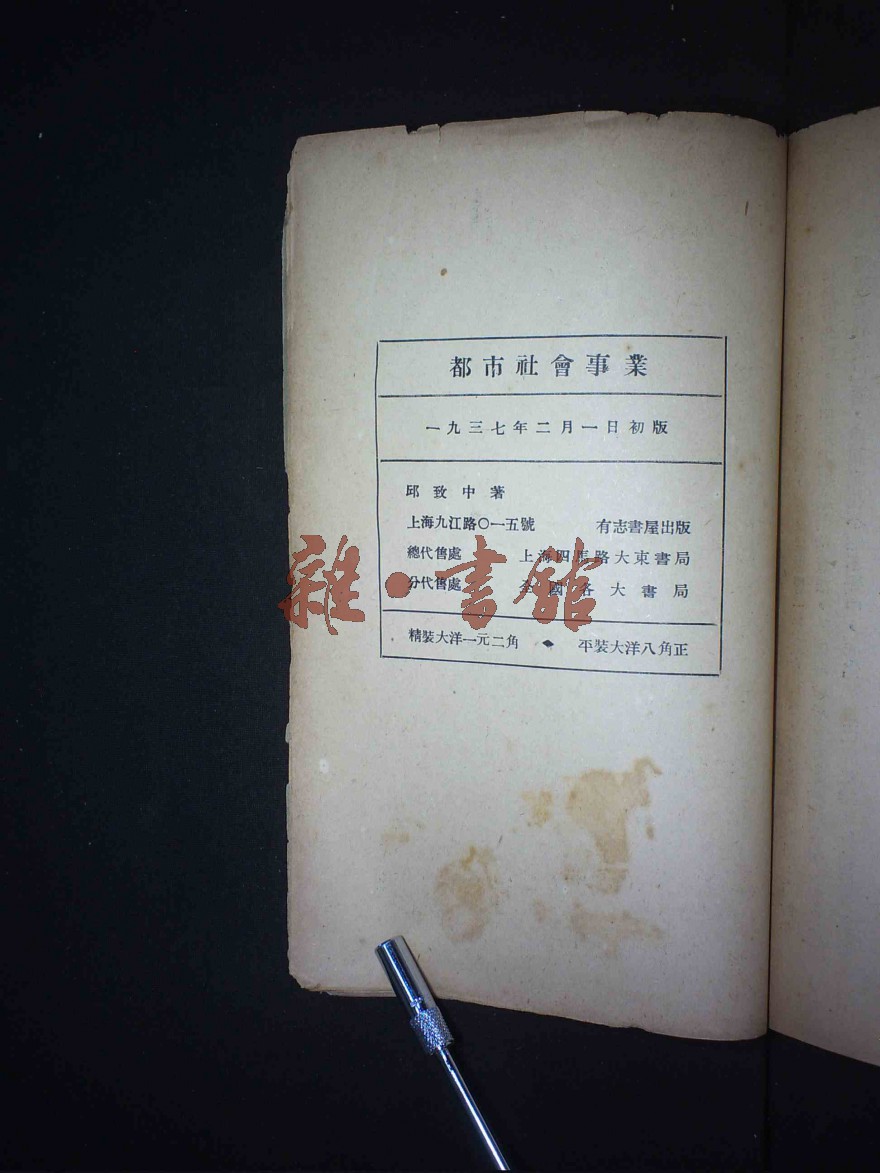 都市社會事業
一九三七年二月一日初版
邱致中著
上海九江路〇一五號　有志書屋出版
總代售處　上海四馬路大東書局
分代售處　全國各大書局
精裝大洋一元二角　平裝大洋八角正
雜·書館